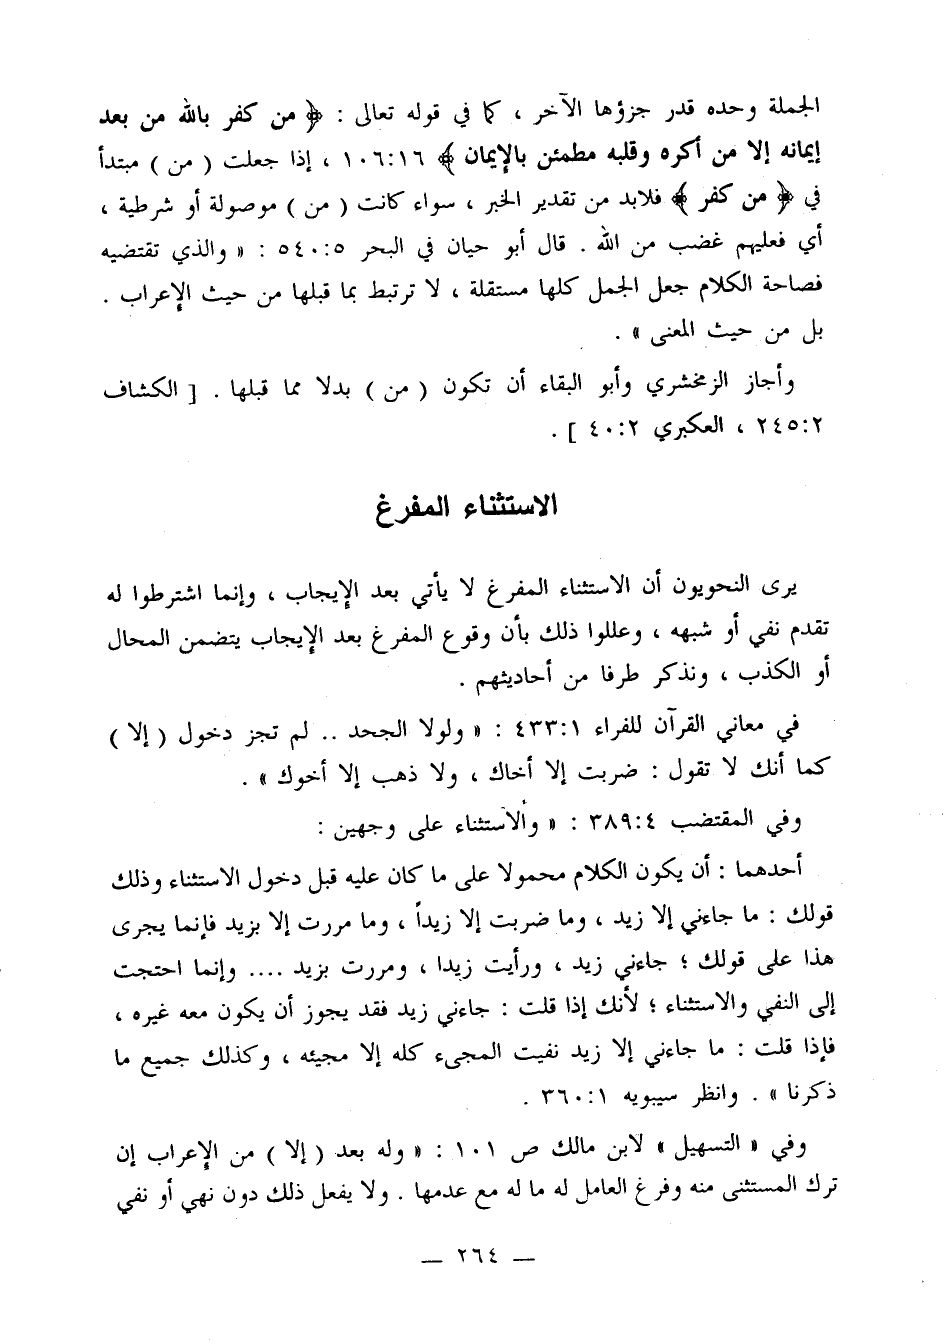 الجملة وحده قدر جزؤها الآخر ، كما في قوله تعالى : ﴿ من كفر بالله من بعد
إيمانه إلا من أكره وقلبه مطمئن بالإيمان ﴾ ١٠٦:١٦ ، إذا جعلت ( من ) مبتدأ
في ﴿ من كفر ﴾ فلابد من تقدير الخبر ، سواء كانت ( من ) موصولة أو شرطية ،
أي فعليهم غضب من الله . قال أبو حيان في البحر ٥٤٠:٥ : « والذي تقتضيه
فصاحة الكلام جعل الجمل كلها مستقلة ، لا ترتبط بما قبلها من حيث الإعراب .
بل من حيث المعنى » .
وأجاز الزمخشري وأبو البقاء أن تكون ( من ) بدلا مما قبلها . [ الكشاف
٢٤٥:٢ ، العكبري ٤٠:٢ ] .
الاستثناء المفرغ
يرى النحويون أن الاستثناء المفرغ لا يأتي بعد الإيجاب ، وإنما اشترطوا له
تقدم نفي أو شبهه ، وعللوا ذلك بأن وقوع المفرغ بعد الإيجاب يتضمن المحال
أو الكذب ، ونذكر طرفا من أحاديثهم .
في معاني القرآن للفراء ٤٣٣:١ : « ولولا الجحد .. لم تجز دخول ( إلا )
كما أنك لا تقول : ضربت إلا أخاك ، ولا ذهب إلا أخوك » .
وفي المقتضب ٣٨٩:٤ : « والاستثناء على وجهين :
أحدهما : أن يكون الكلام محمولا على ما كان عليه قبل دخول الاستثناء وذلك
قولك : ما جاءني إلا زيد ، وما ضربت إلا زيداً ، وما مررت إلا بزيد فإنما يجرى
هذا على قولك ؛ جاءني زيد ، ورأيت زيدا ، ومررت بزيد .... وإنما احتجت
إلى النفي والاستثناء ؛ لأنك إذا قلت : جاءني زيد فقد يجوز أن يكون معه غيره ،
فإذا قلت : ما جاءني إلا زيد نفيت المجىء كله إلا مجيئه ، وكذلك جميع ما
ذكرنا » . وانظر سيبويه ٣٦٠:١ .
وفي « التسهيل » لابن مالك ص ١٠١ : « وله بعد ( إلا ) من الإعراب إن
ترك المستثنى منه وفرغ العامل له ما له مع عدمها . ولا يفعل ذلك دون نهي أو نفي
— ٢٦٤ —